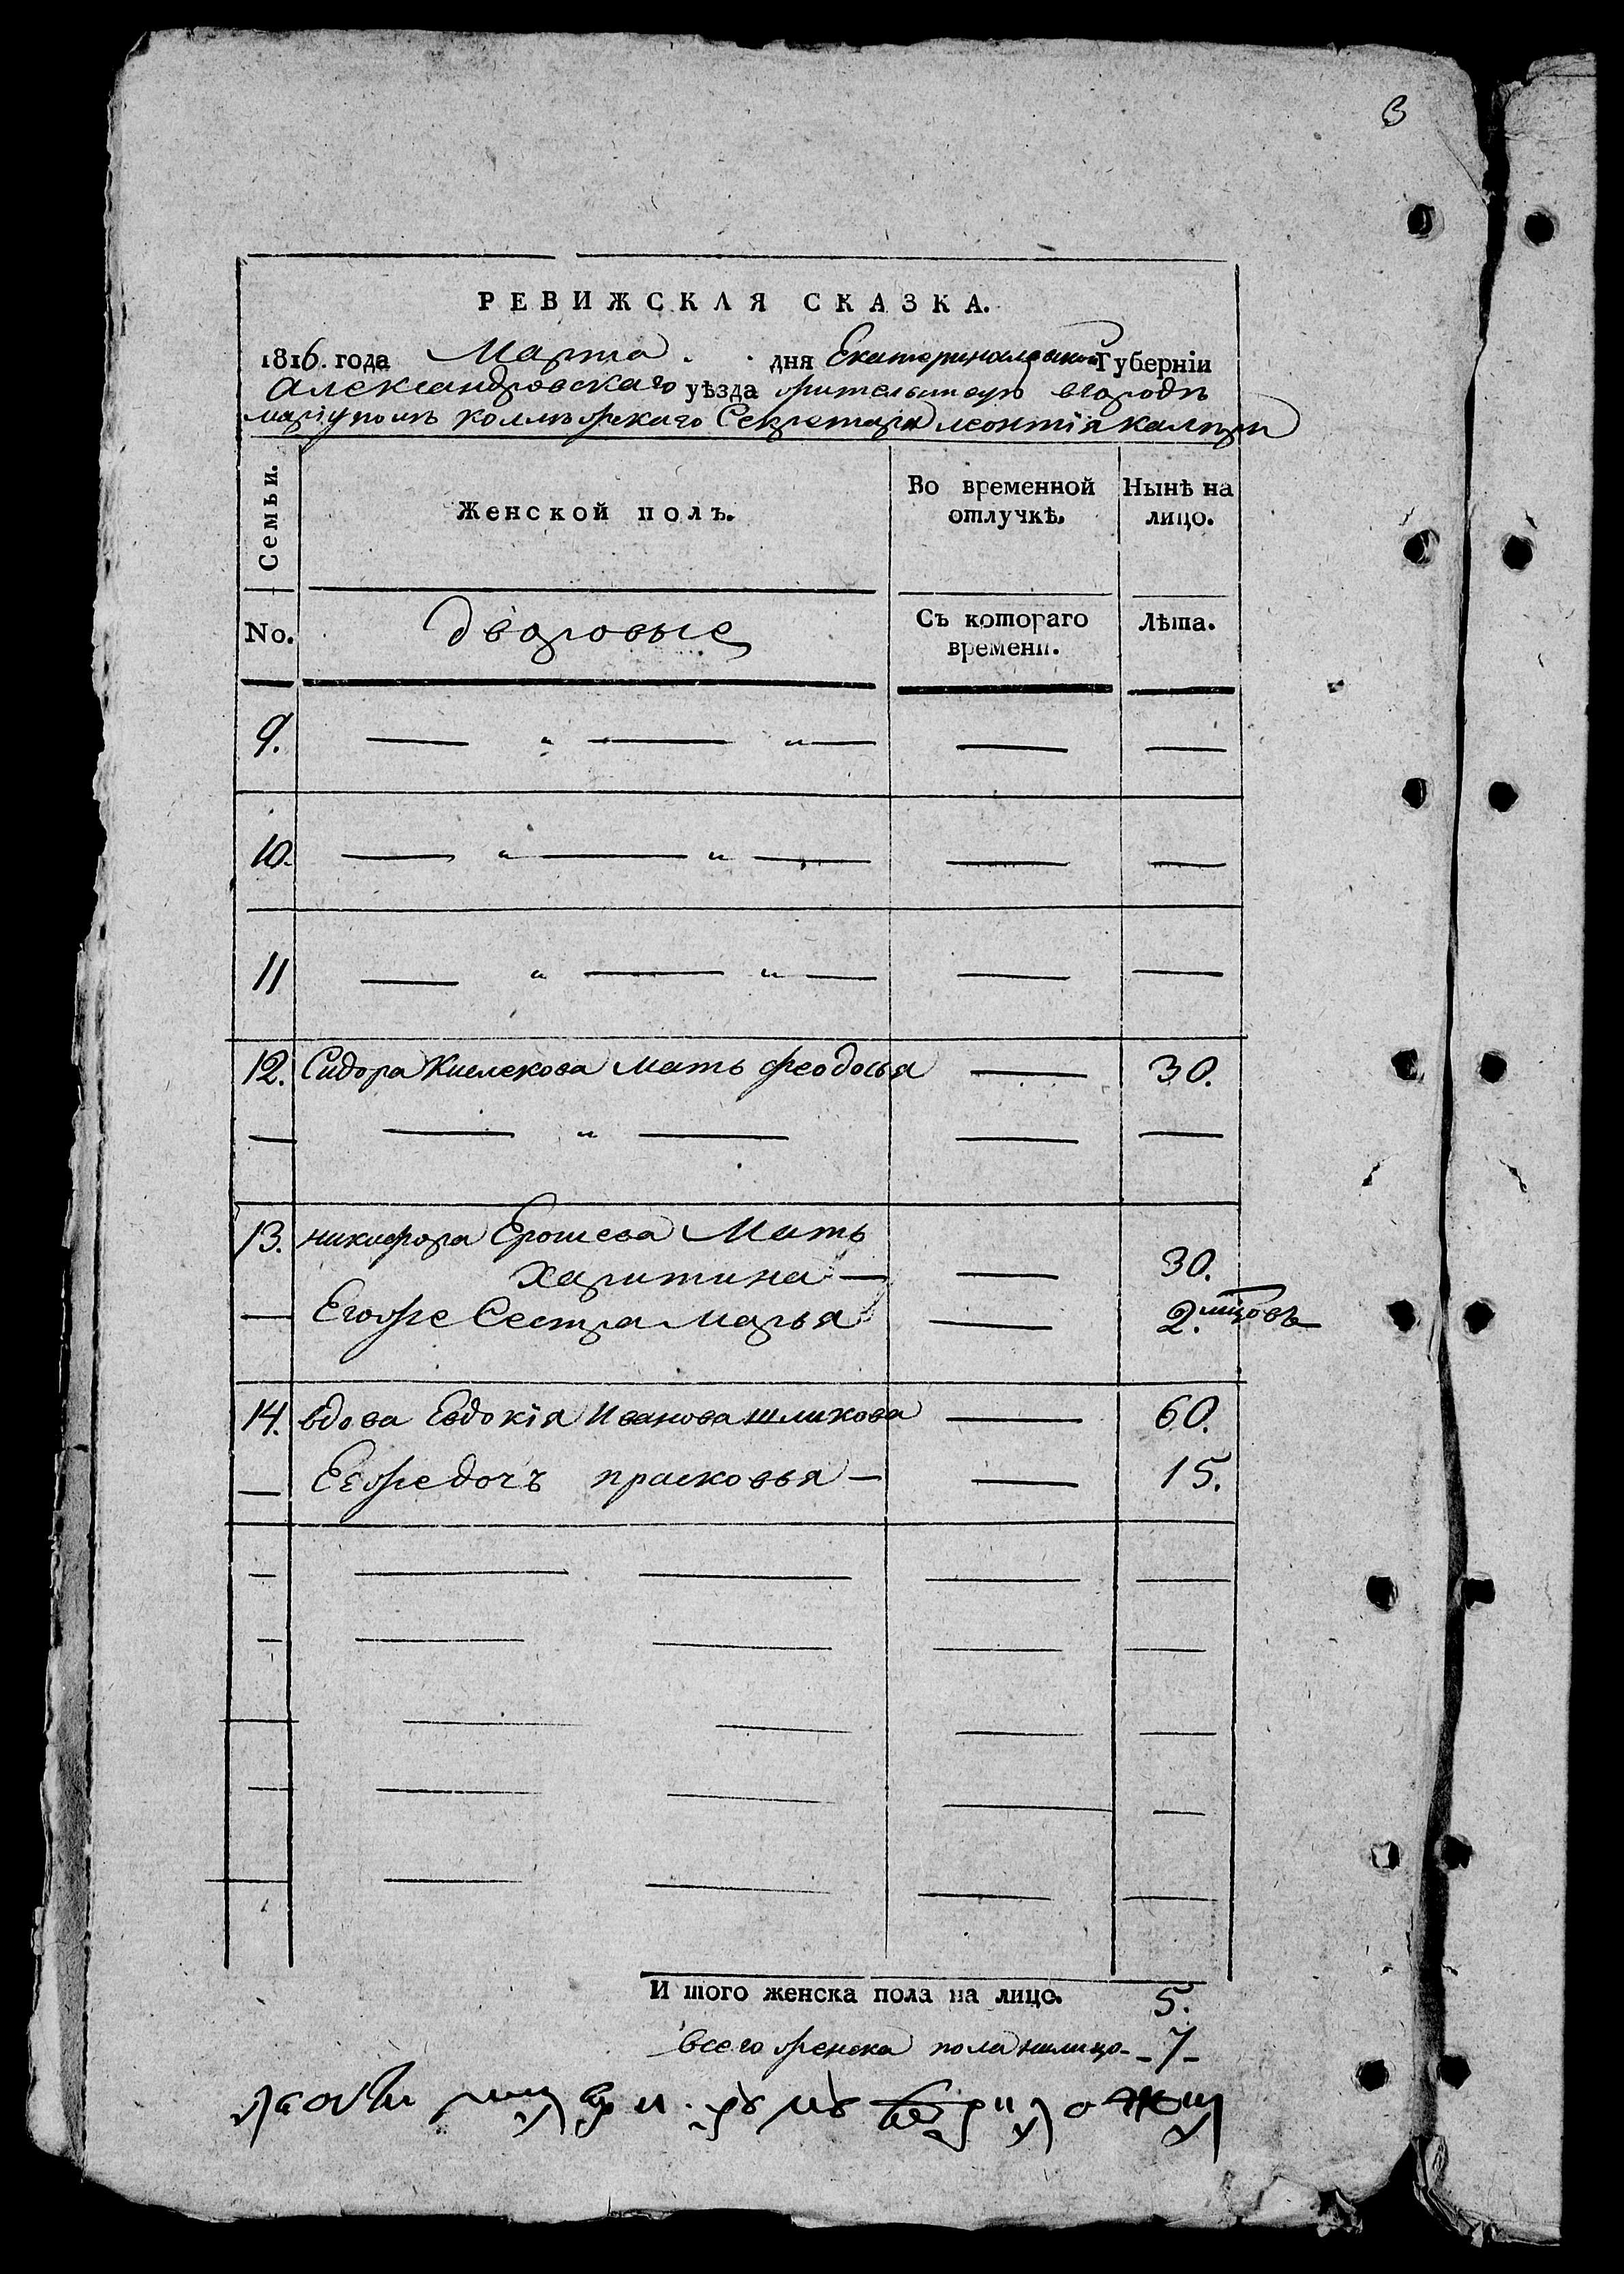 3
РЕВИЖСКАЯ СКАЗКА.
1816. года Марта . . дня Екатеринославской Губерніи
Александровскаго уѣзда жительствую вгородѣ
маріуполѣ коллѣжскаго Секретаря леонтія
Семьи.
Женской полъ.
Во временной отлучкѣ.
Нынѣ на лицо.
No.
дворовые
Съ котораго времени.
Лѣта.
9. — " — " — — —
10. — " — " — — —
11 — " — " — — —
12. Сидора Кислекова мать феодосья — 30.
— — " — — —
13. никифора Ерошева Мать
харитина — — 30.
— Егоже Сестра марья — 2. мцовъ
14. вдова Евдокія Иванова шликова — 60.
— Ееже дочь прасковья — — 15.
И того женска пола на лицо. 5.
всего женска пола налицо - 7 -